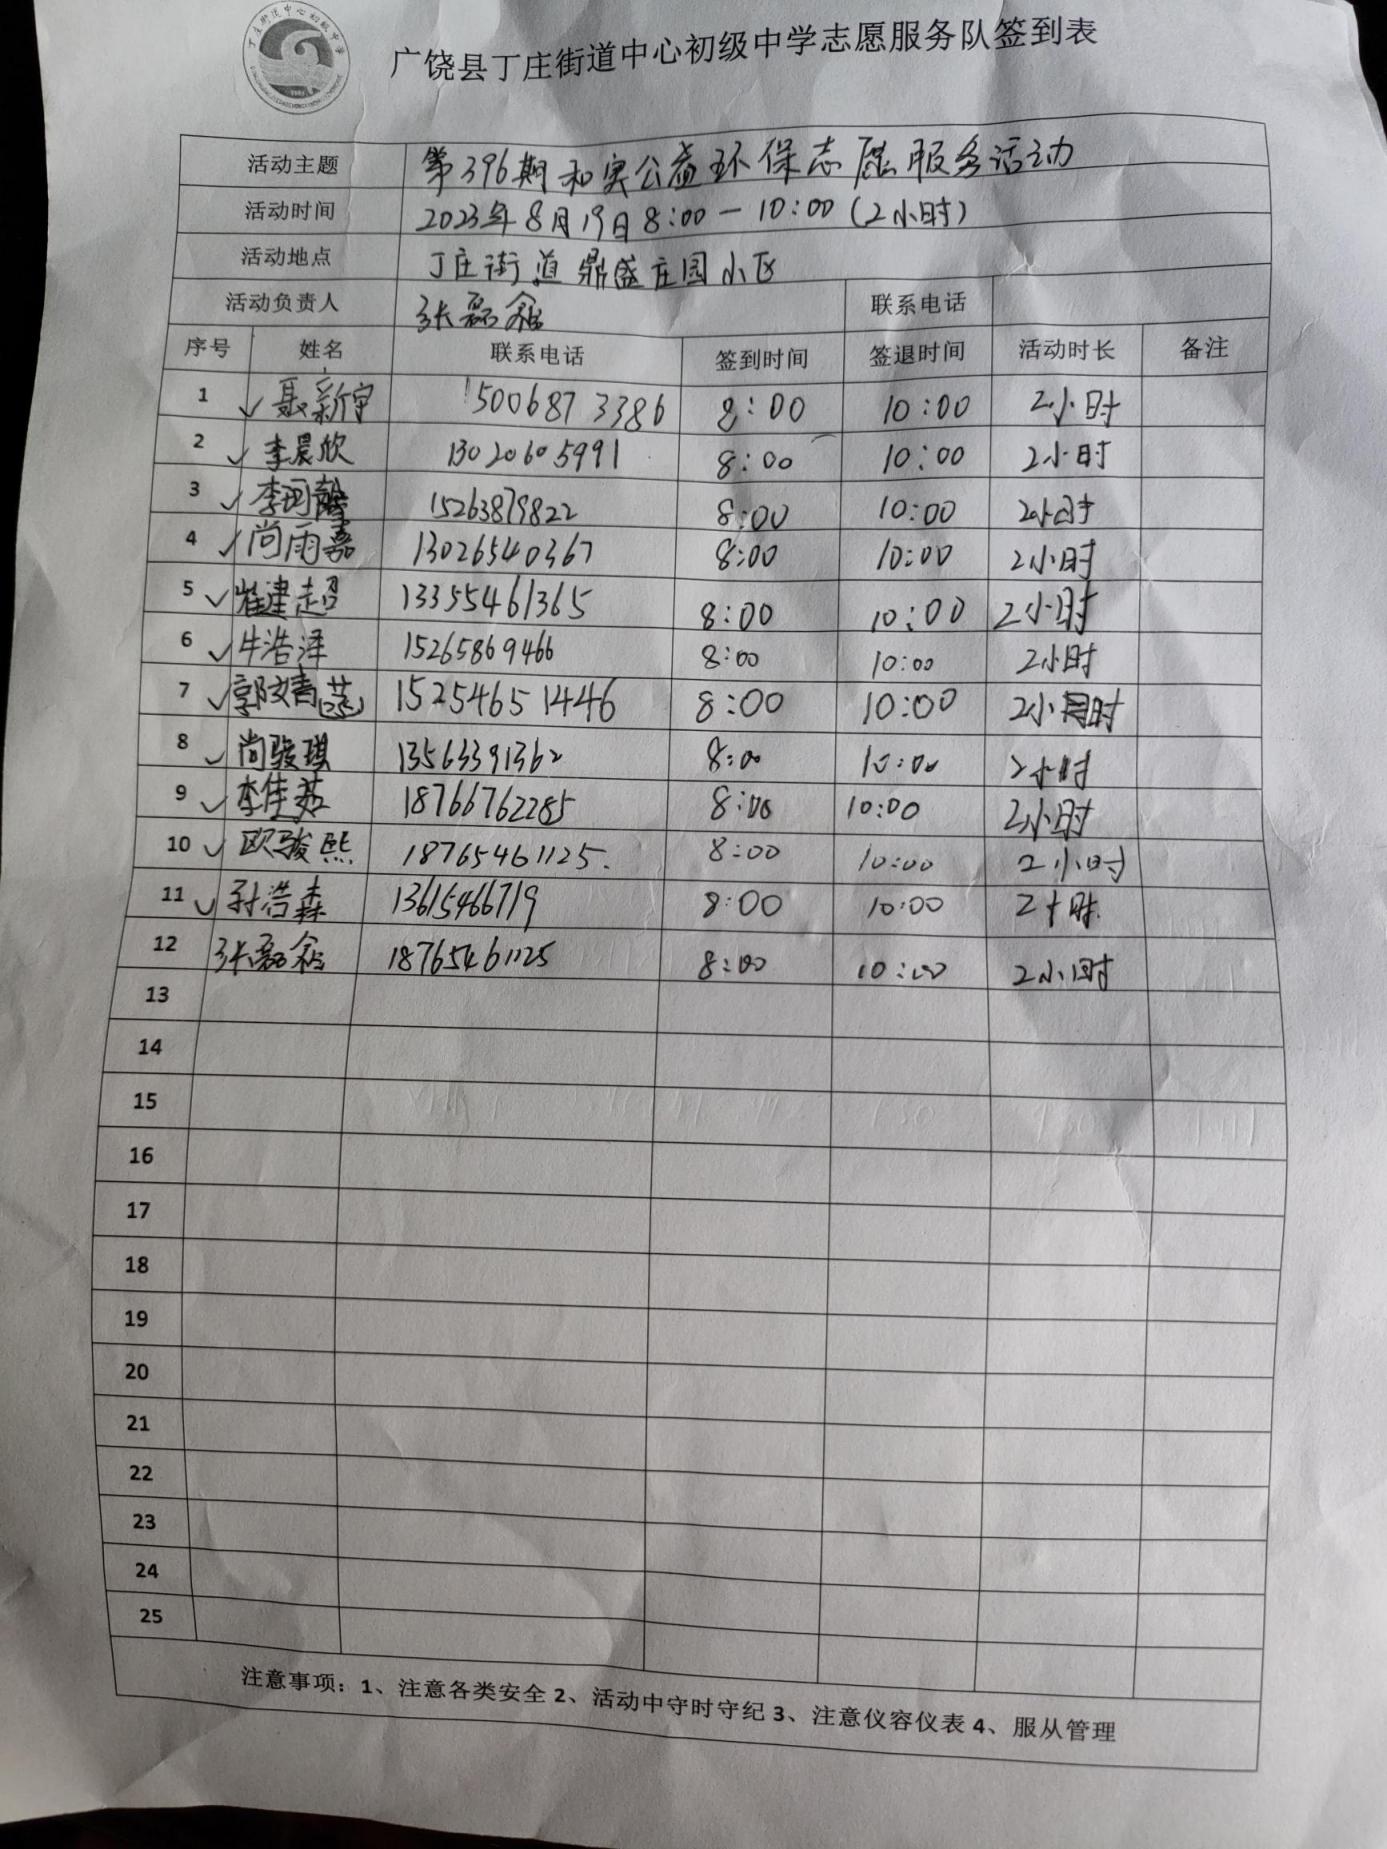 丁庄街道中心初级中学
广饶县丁庄街道中心初级中学志愿服务队签到表
活动主题 第396期和実公益环保志愿服务活动
活动时间 2023年8月19日8:00－10:00(2小时)
活动地点 丁庄街道鼎盛庄园小区
活动负责人 张磊鑫 联系电话
序号 姓名 联系电话 签到时间 签退时间 活动时长 备注
1 聂新宇 15006873386 8:00 10:00 2小时
2 李晨欣 13020605991 8:00 10:00 2小时
3 李珂馨 15263879822 8:00 10:00 2小时
4 尚雨嘉 13026540367 8:00 10:00 2小时
5 崔建超 13355461365 8:00 10:00 2小时
6 牛浩泽 15265869466 8:00 10:00 2小时
7 郭文青 15254651446 8:00 10:00 2小时
8 尚骏琪 13563391362 8:00 10:00 2小时
9 李佳茹 18766762285 8:00 10:00 2小时
10 欧骏熙 18765461125. 8:00 10:00 2小时
11 孙浩森 13615466719 8:00 10:00 2小时
12 张磊鑫 18765461125 8:00 10:00 2小时
13
14
15
16
17
18
19
20
21
22
23
24
25
注意事项：1、注意各类安全 2、活动中守时守纪 3、注意仪容仪表 4、服从管理